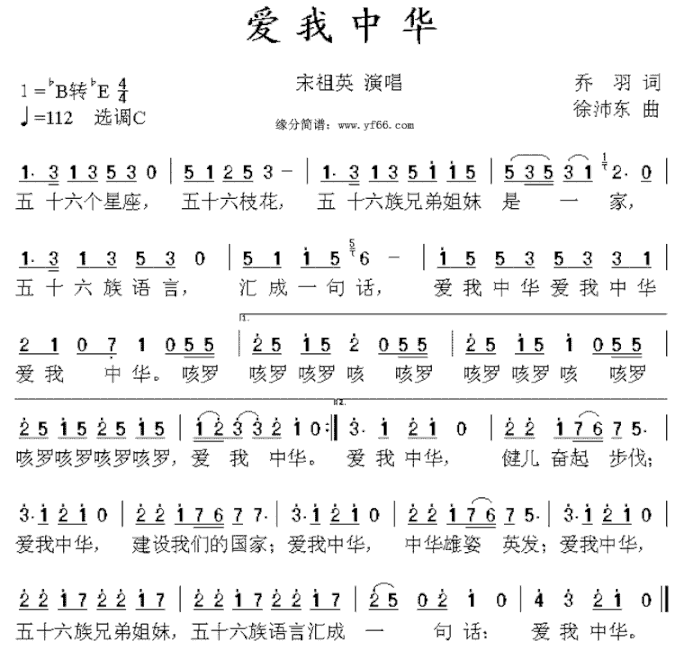 爱我中华
1=♭B转♭E 4/4
宋祖英 演唱
乔 羽 词
♩=112 选调C
徐沛东 曲
缘分简谱：www.yf66.com
1· 3 1 3 5 3 0 | 5 1 2 5 3 － | 1· 3 1 3 5 i i 5 | 5 3 5 3 1 2· 0 |
五 十六个星座， 五十六枝花， 五 十六族兄弟姐妹 是 一 家，
1· 3 1 3 5 3 0 | 5 1 i 5 6 － | i 5 5 3 5 3 3 1 |
五 十 六 族 语 言， 汇 成 一 句 话， 爱 我 中 华 爱 我 中 华
2 1 0 7 1 0 5 5 | 2 5 i 5 i 0 5 5 | 2 5 i 5 i 0 5 5 |
爱 我 中 华。 咳罗 咳罗 咳罗 咳 咳罗 咳罗 咳罗 咳 咳罗
2 5 i 5 2 5 i 5 | i 2 3 3 2 i 0 :‖ 3· i 2 i 0 | 2 2 i 7 6 7 5· |
咳罗咳罗咳罗咳罗， 爱 我 中华。 爱 我 中华， 健儿 奋起 步伐；
3· i 2 i 0 | 2 2 i 7 6 7 7· | 3· i 2 i 0 | 2 2 i 7 6 7 5· | 3· i 2 i 0 |
爱我中华， 建设我们的国家；爱我中华， 中华雄姿 英发；爱我中华，
2 2 i 7 2 2 i 7 | 2 2 i 7 2 2 i 7 | 2 5 0 2 i 0 | 4 3 i 0 ‖
五十六族兄弟姐妹，五十六族语言汇成 一 句话： 爱 我 中华。